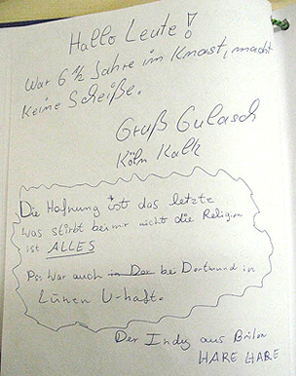 Hallo Leute!
War 6 1/2 Jahre im Knast, macht
keine Scheiße.
Gruß Gulasch
Köln Kalk
Die Hofnung ist das letzte
was stirbt bei mir nicht die Religion
ist ALLES
Ps: War auch in Dor bei Dortmund in
Lünen U-haft.
Der Indy aus Brilon
HARE HARE